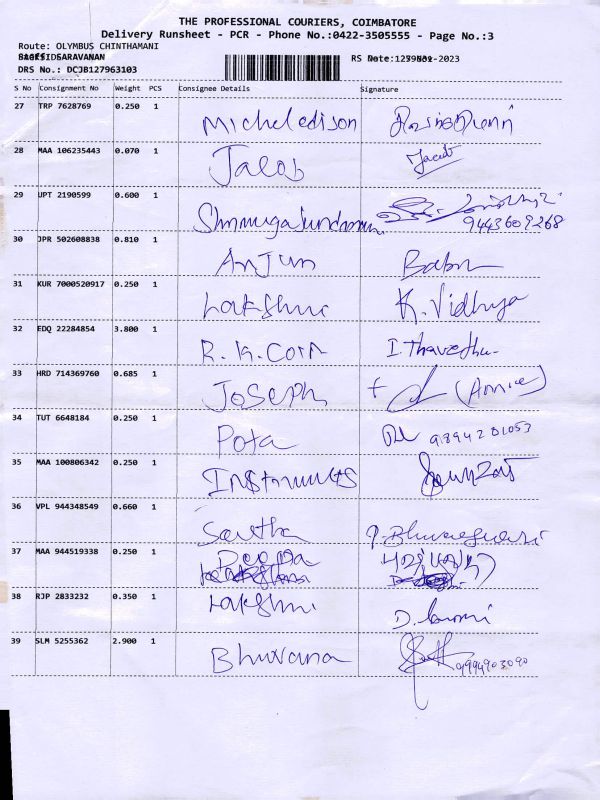 THE PROFESSIONAL COURIERS, COIMBATORE
Delivery Runsheet - PCR - Phone No.:0422-3505555 - Page No.:3
Route: OLYMBUS CHINTHAMANI
SARAVANAN
RS Date: -2023
DRS No.: DCJB127963103
S No Consignment No Weight PCS Consignee Details Signature
27 TRP 7628769 0.250 1 Micheledison
28 MAA 106235443 0.070 1 Jacob Jacob
29 UPT 2190599 0.600 1 Shnmugasundaram 9443609268
30 JPR 502608838 0.810 1 Anjun Babu
31 KUR 7000520917 0.250 1 Lakshmi K. Vidhya
32 EDQ 22284854 3.800 1 R.K. Corn I.
33 HRD 714369760 0.685 1 Joseph (Annice)
34 TUT 6648184 0.250 1 Pota 9894281053
35 MAA 100806342 0.250 1 Instruments
36 VPL 944348549 0.660 1 Saritha P. Bhuvaneswari
37 MAA 944519338 0.250 1 Deepa
38 RJP 2833232 0.350 1 Lakshmi D. Laxmi
39 SLM 5255362 2.900 1 Bhuvana 9994903090